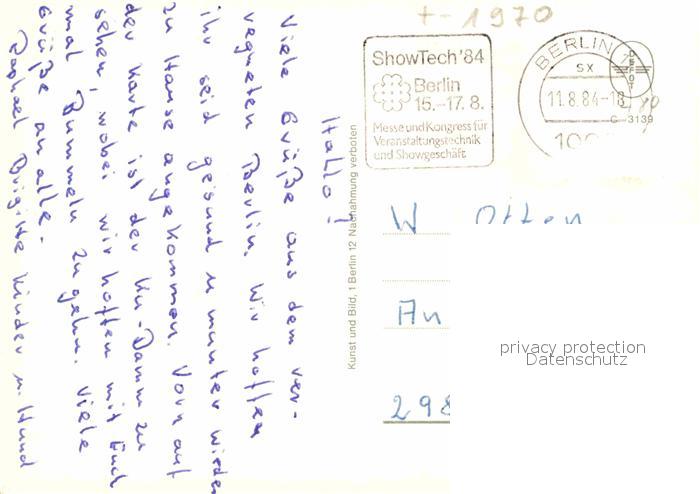 Hallo!
Viele Grüße aus dem ver-
regneten Berlin. Wir hoffen
ihr seid gesund u munter wieder
zu Hause angekommen. Vorn auf
der Karte ist der Ku-Damm zu
sehen, wobei wir hoffen mit Euch
mal Bummeln zu gehn. Viele
Grüße an alle.
Raphael Brigitte Kinder u. Hund
Kunst und Bild, 1 Berlin 12 Nachahmung verboten
+-1970
ShowTech'84
Berlin
15.-17.8.
Messe und Kongress für
Veranstaltungstechnik
und Showgeschäft
BERLIN
sx
11.8.84-18
100
DEFOT
C 3139
W
An
298
privacy protection
Datenschutz